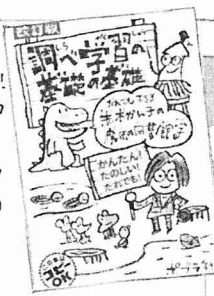 改訂版
調べ学習の
基礎の基礎
だれでもできる
赤木かん子の
魔法の図書館学
かんたん!
たのしい!
だれでも!
コピー
OK
ポプラ社